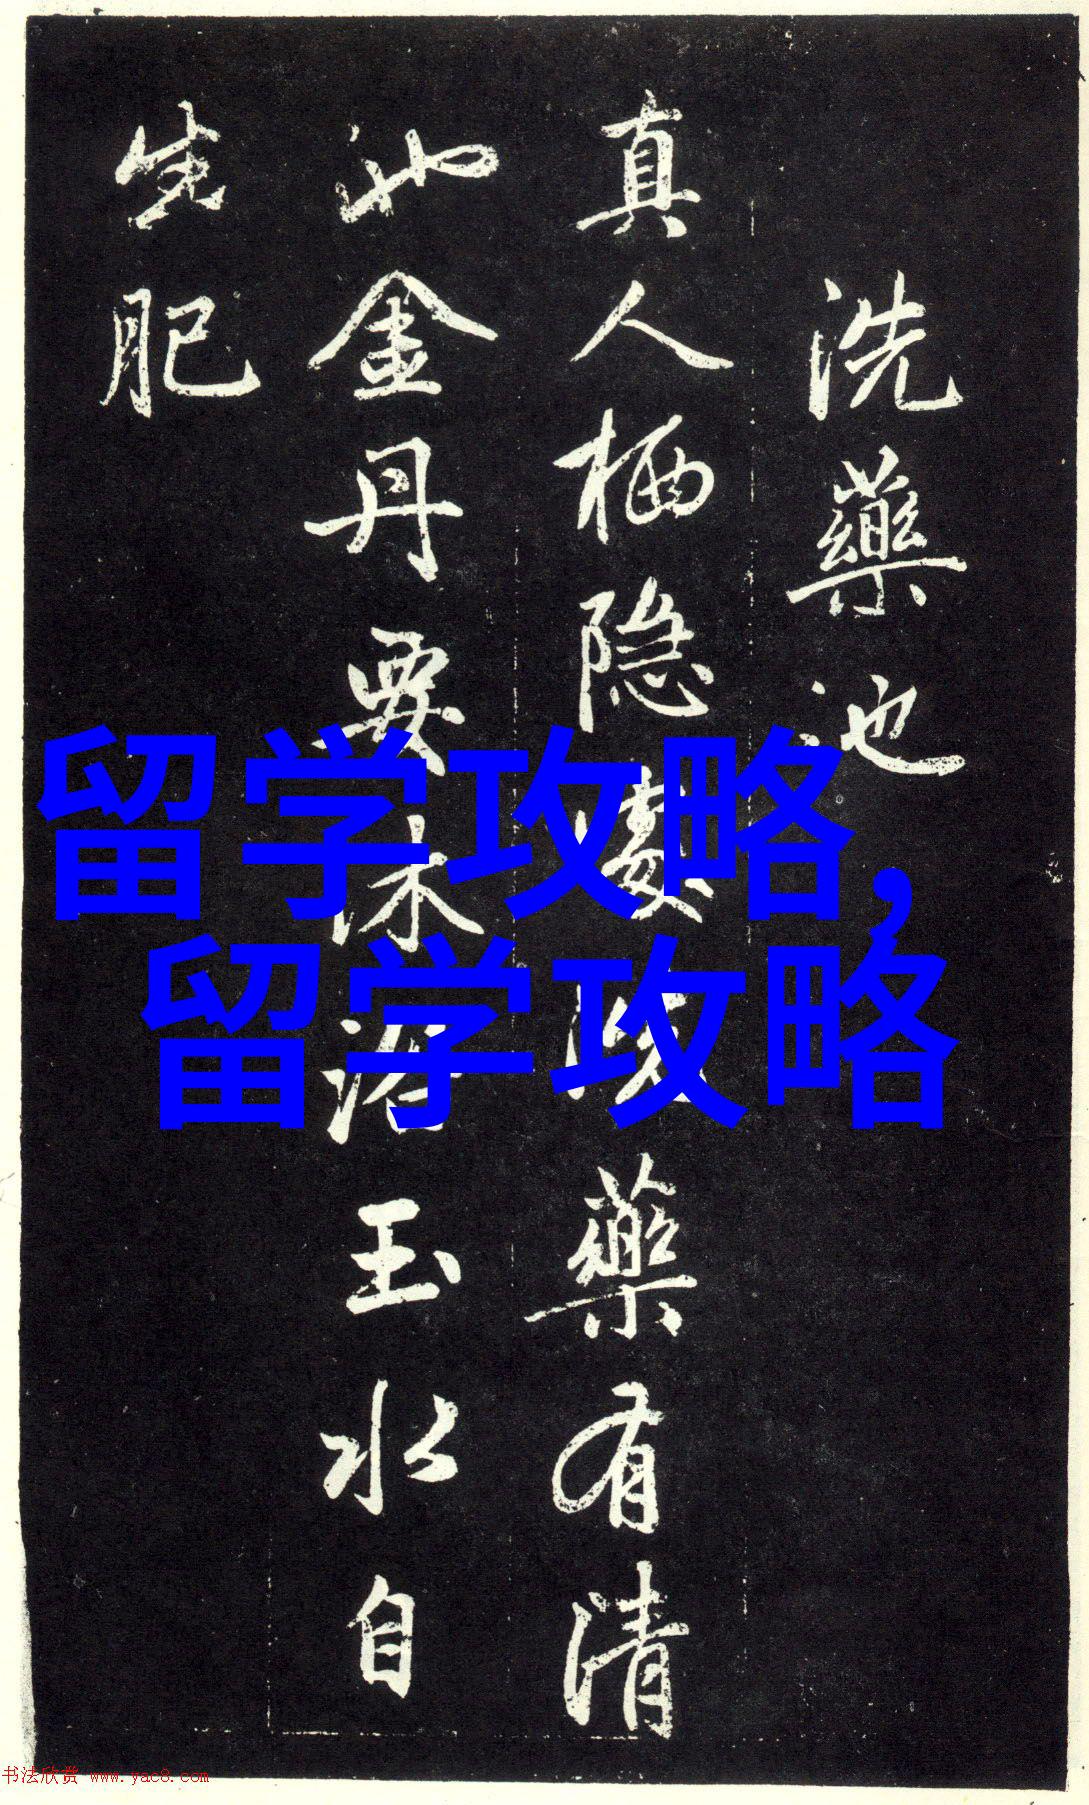 洗藥池
真人栖隐處洗藥有清
池金丹要沐浴玉水自
生肥
留学攻略,
留学攻略
书法欣赏 www.yac8.com